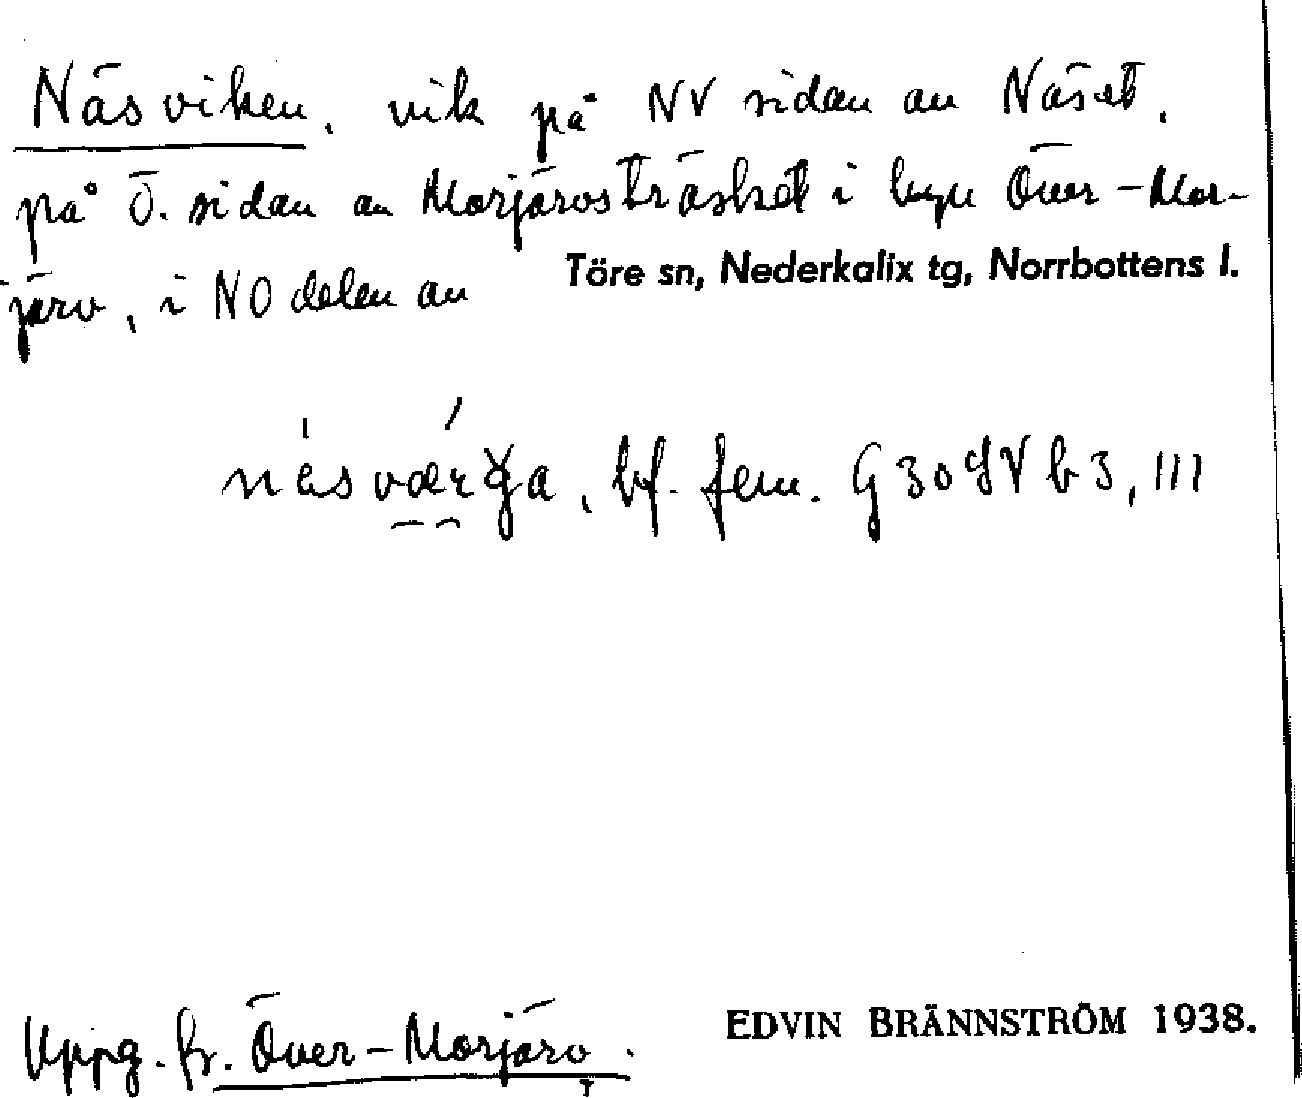 Näsviken, vik på NV sidan av Näset,
på Ö. sidan av Morjärvsträsket i byn Över-Mor-
järv, i NO delen av
Töre sn, Nederkalix tg, Norrbottens l.
bf. fem. G 30 b 3, III
Uppg. fr. Över-Morjärv.
EDVIN BRÄNNSTRÖM 1938.